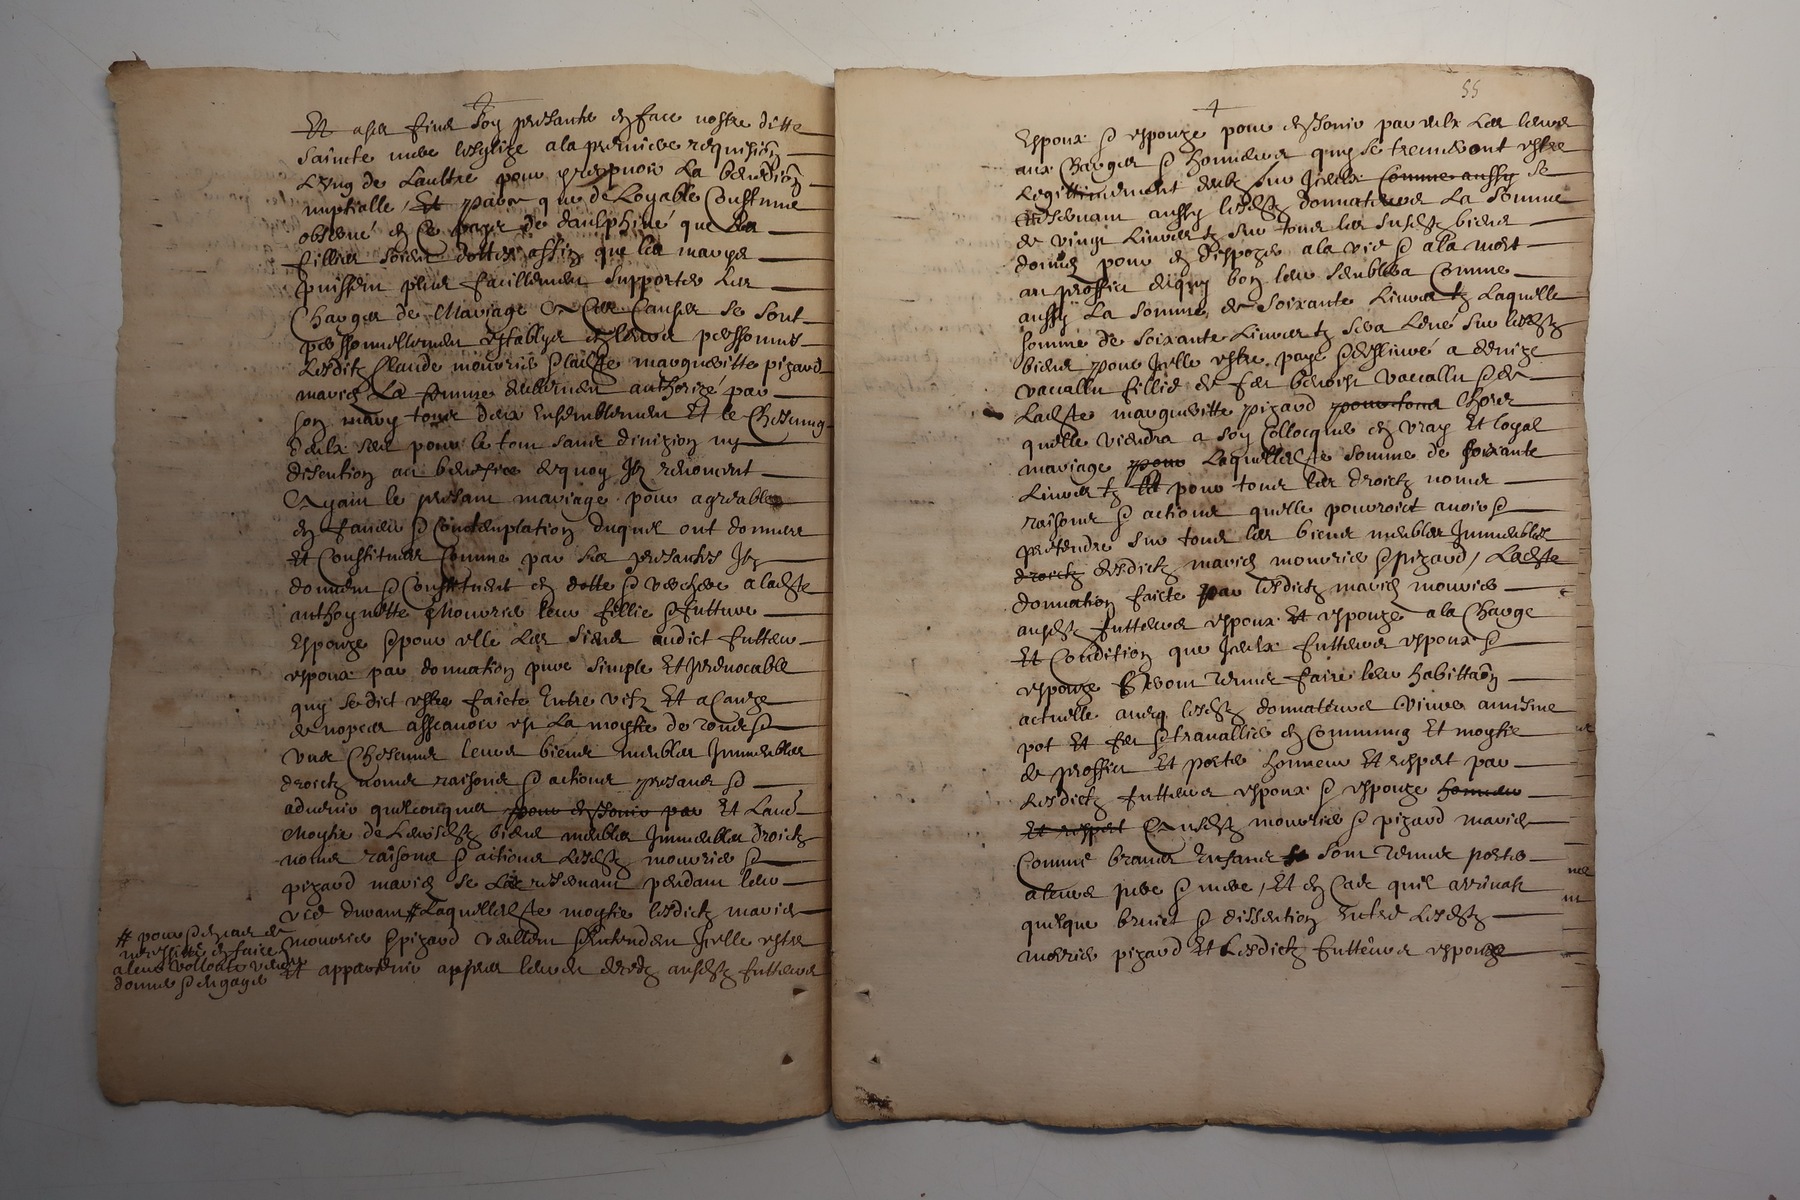 Et a ses fins soy presanter en face nostre ditte
saincte mere lesglize a la premiere requisi͠on
Lung de Laultre pour y recepvoir La benedi͠on
nuptialle, Et parce que de Loyable Coustume
observé en ce pays de daulphiné que les
fillies soient dottees affin que les maryes
puissent plus facillement supporter Les
Charges de Mariage A Ces Causes se sont
personnellement establys en leurs personnes
Lesditz Claude mourier et ladte margueritte pizard
mariez La femme deuhement authorizé par
son mary tous deux ensemblement Et le Chescung
deulx seul pour le tout sans divizion ny
discution au benefice dequoy Ilz renoncent
Ayant le presant mariage pour agreable
en faveur et Contemplation duquel ont donnere
Et Constitues Comme par ses presantes Ilz
donnent et Constituent en dotte et verchere a ladte
anthoynette Mourier leur fillie et futture
Espouze et pour elle Les siens audict futteur
espoux par donnation pure simple Et Irrevocable
quy se dict estre faicte Entre vifz Et a Cauze
de nopces assçavoir est La moytie de tous et
Ungs Chescuns leurs biens meubles Immeubles
droictz noms raisons et actions presans et
advenir quelconques pour en Jouir par Et Laud.
Moytie de Leursdtz biens meubles Immeubles droictz
noms raisons et actions Lesdtz mourier et
pizard mariez se Les reservant pendant leur
vie durant # Laquellesdte moytie lesdictz mariez
mourier et pizard veullent et entendent Icelle estre
Et appartenir apres leurs decedz ausdtz futteurs
# pour et en cas de
necessitté en faire
a leurs vollonte vendre
donner et engager
55
Espoux et espouze pour en Jouir par eulx Les leurs
aux Charges et honneurs quy se treuveront estre
Legittimement deubz sur Iceulx Comme aussy se
reservant aussy lesdtz donnateurs La Somme
de vingt Livres tz sur tous les susdtz biens
donnez pour en dispozer a la vie et a la mort
au proffict de quy bon leur semblera Comme
aussy La Somme de Soixante Livres tz Laquelle
somme de Soixante Livres tz sera Levé sur lesdtz
biens pour Icelle estre payé et dellivré a denize
varcallu fillie de feu benoist Varcallu et de
Ladte margueritte pizard pour tous hors
quelle viendra a soy Collocquer en vray Et loyal
mariage pour Laquellesdte somme de soixante
Livres tz Et pour tous Les droictz noms
raisons et actions quelle pourroict avoir et
pretendre sur tous les biens meubles Immeubles
droictz desdictz mariez mourier et pizard, Ladte
donnation faicte par lesdictz mariez mourier
ausdtz futteurs espoux Et espouze a la Charge
Et Condition que Iceulx futteurs espoux et
espouze seront tenus faire leur habitta͠on
actuelle avecq lesdtz donnateurs vivre a mesme
pot Et feu et travallier en Commung Et moytie
de proffict Et porter honneur Et respect par
Lesdictz futteurs espoux et espouze honneur
Et respect Ausdtz mourier et pizard mariez
Comme braves Enfans sont tenus porter
a leurs pere et mere, Et en Cas quil arrivat
quelque bruict et dissention Entre Lesdtz
morier pizard Et Lesdictz futteurs espouze